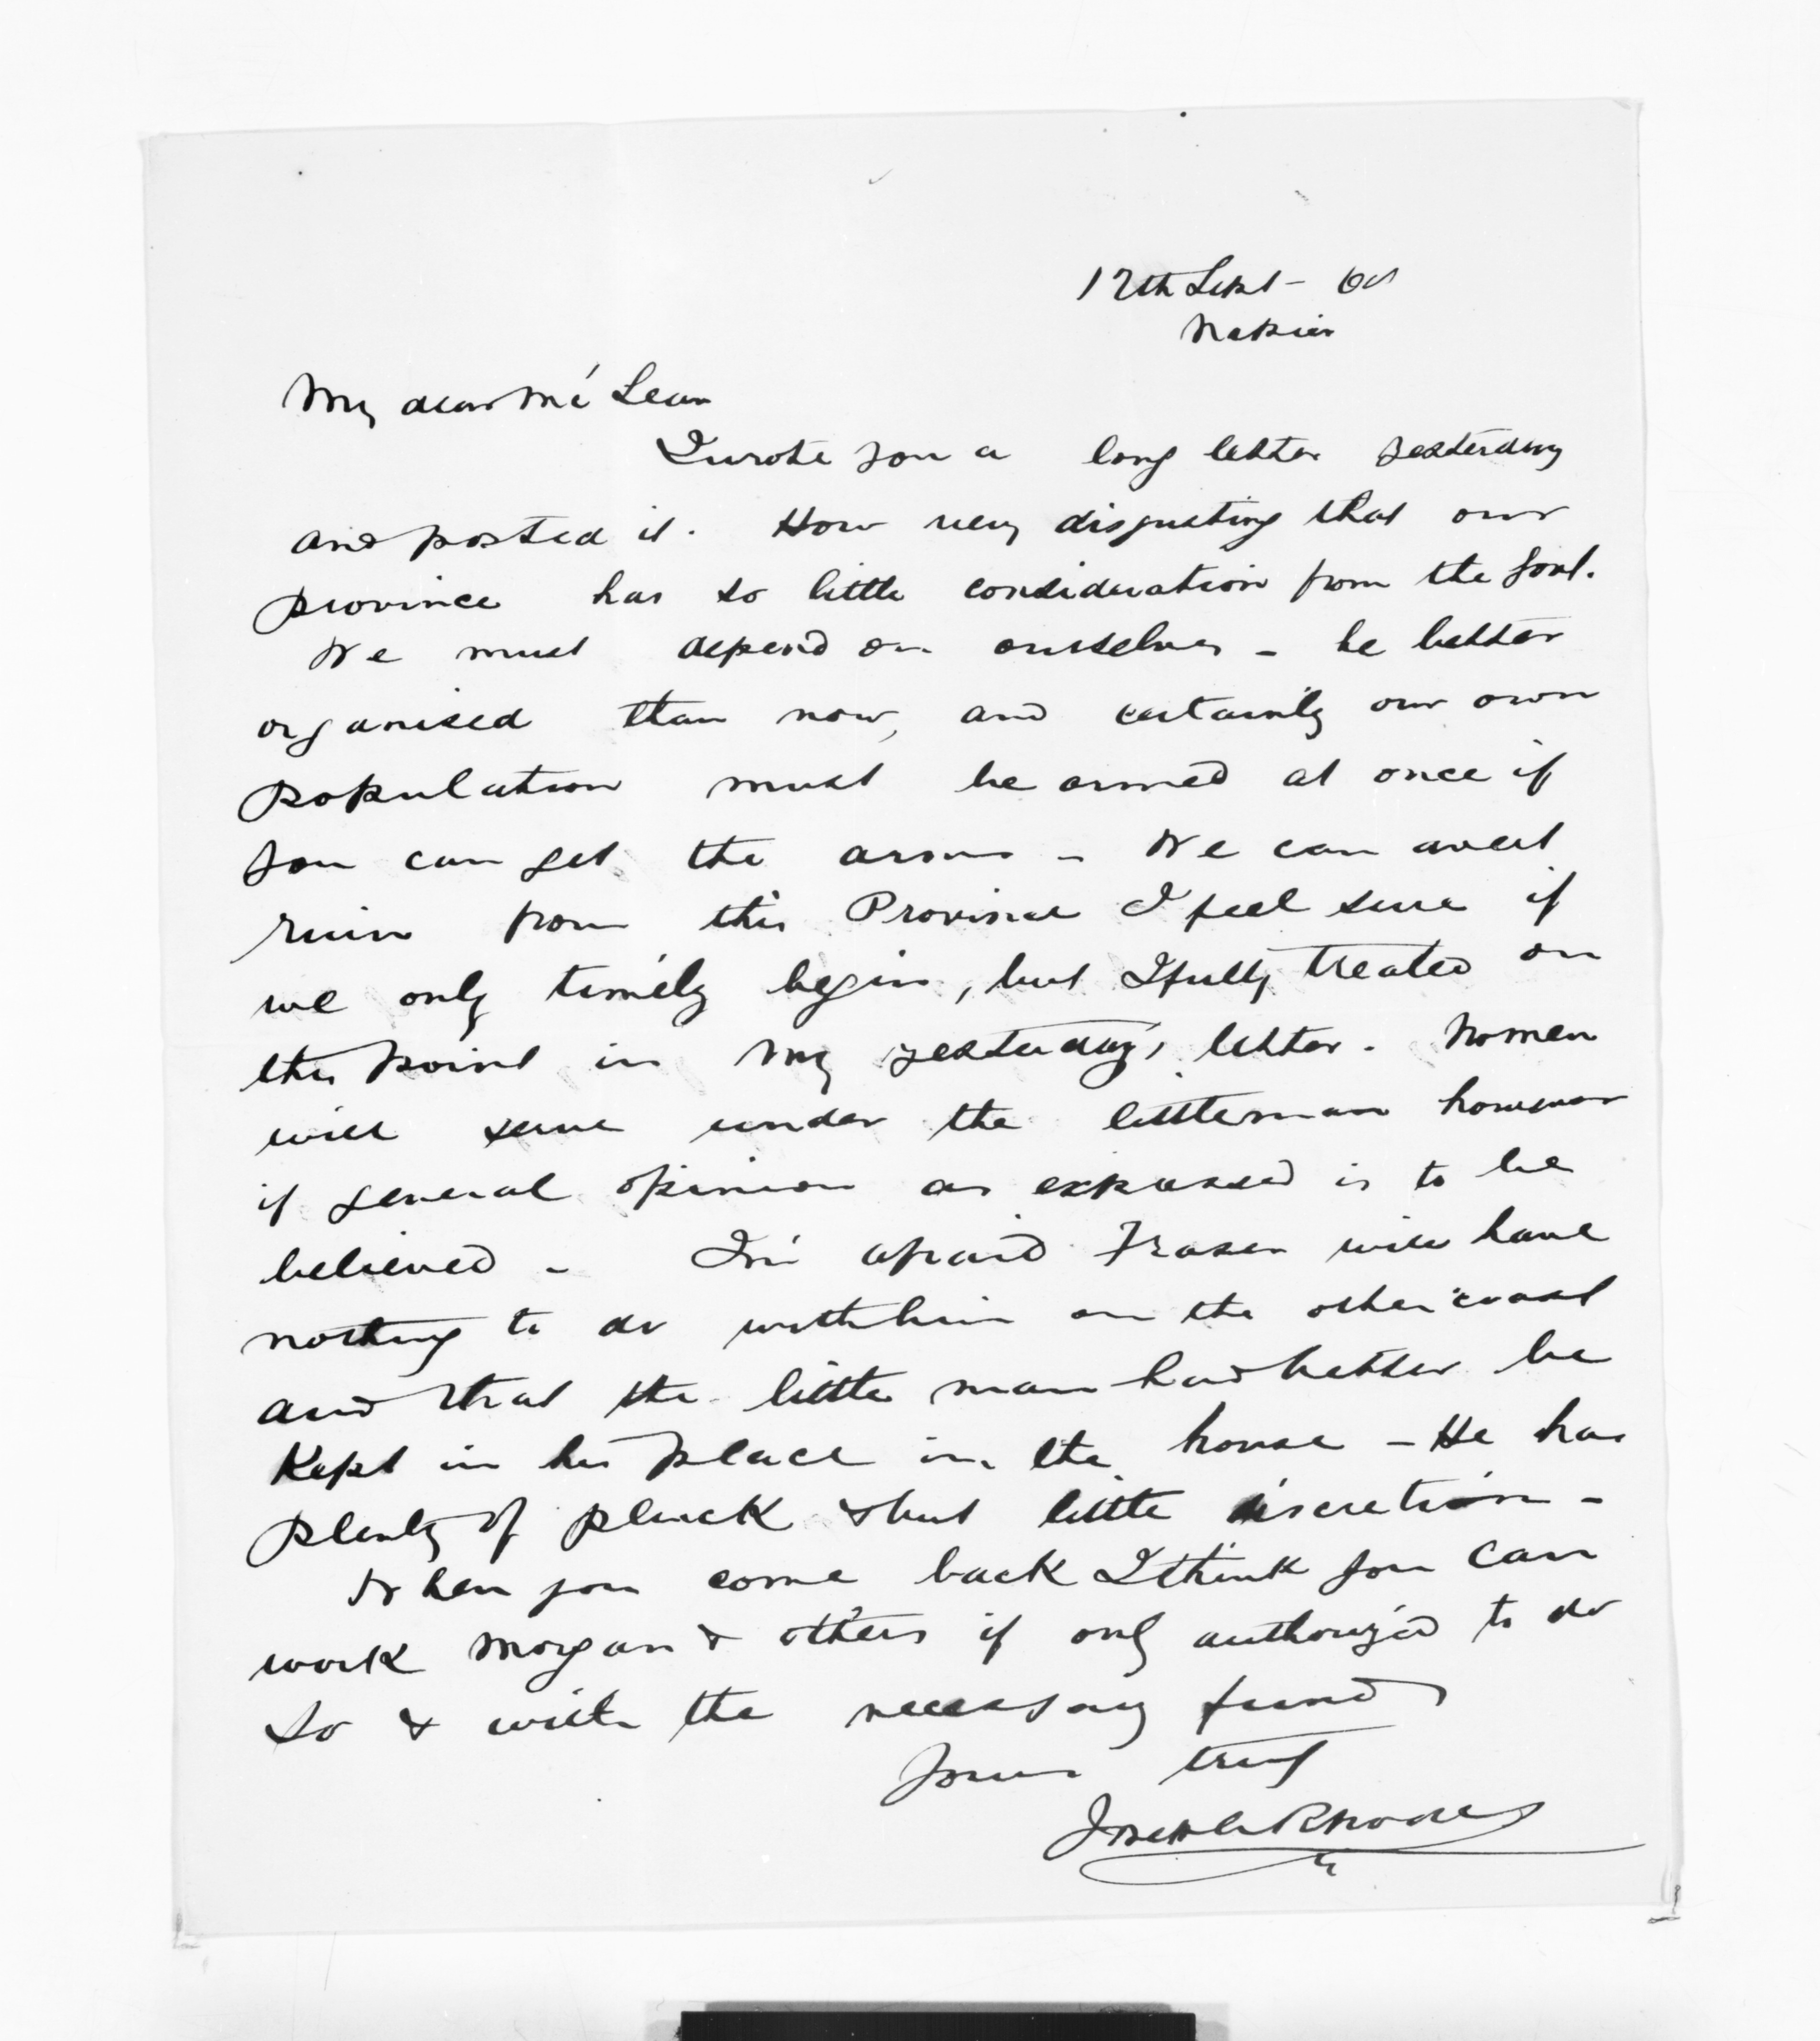 17th Sept - 68
Napier
My dear McLean
I wrote you a long letter yesterday
and posted it. How very disgusting that our
province has so little consideration from the Govt.
We must depend on ourselves - be better
organised than now, and certainly our own
population must be armed at once if
you can get the arms - We can avert
ruin from this Province I feel sure if
we only timely begin, but I fully treated on
this point in my yesterday's letter. No men
will serve under the little man however
if general opinion as expressed is to be
believed - I'm afraid Fraser will have
nothing to do with him on the other coast
and that the little man had better be
kept in his place in the house - He has
plenty of pluck & but little discretion -
When you come back I think you can
work Morgan & others if only authoriz'd to do
so & with the necessary funds
Yours truly
Joseph Rhodes